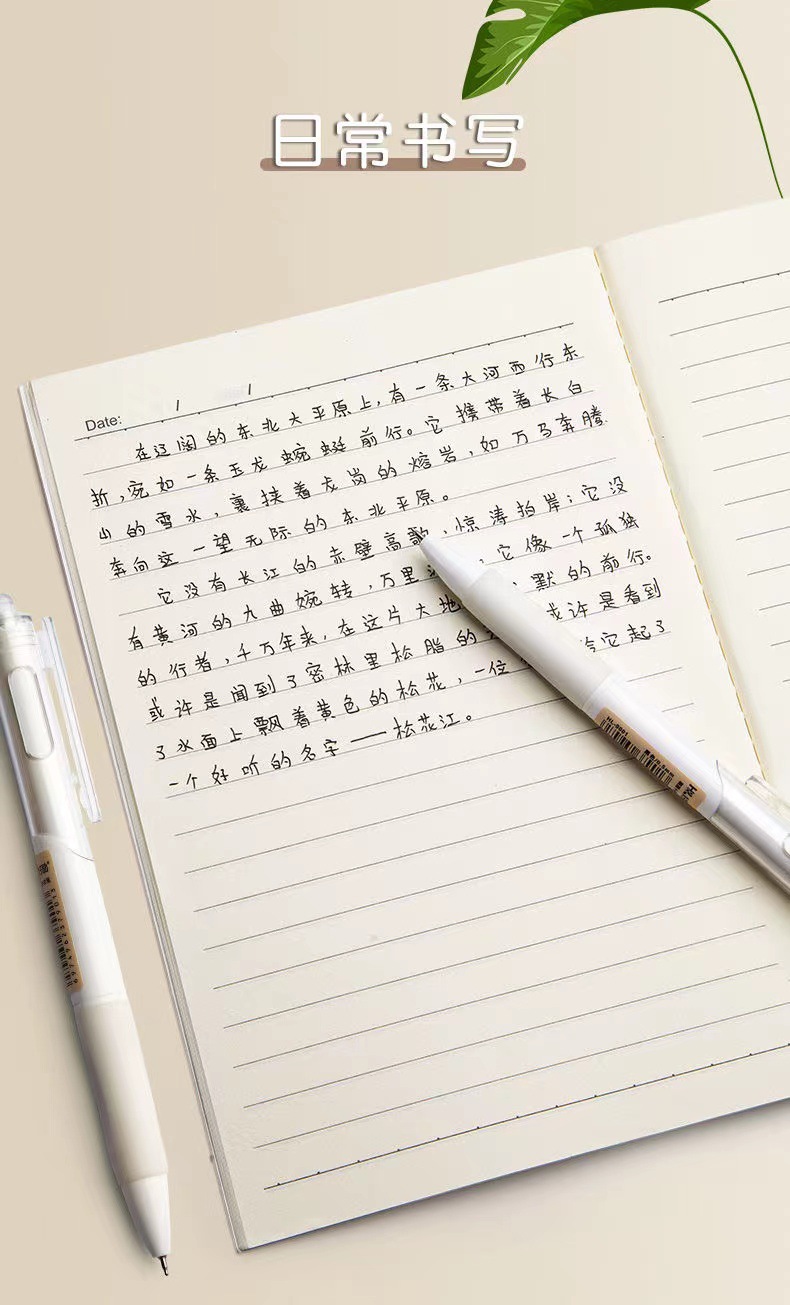 日常书写
Date: / /
在辽阔的东北大平原上,有一条大河西行东
折,宛如一条玉龙蜿蜒前行。它携带着长白
山的雪水,裹挟着龙岗的熔岩,如万马奔腾
奔向这一望无际的东北平原。
它没有长江的赤壁高歌,惊涛拍岸;它没
有黄河的九曲婉转,万里 它像一个孤独
的行者,千万年来,在这片大地 默的前行。
或许是闻到了密林里松脂的 或许是看到
了水面上飘着黄色的松花,一位 给它起了
一个好听的名字——松花江。